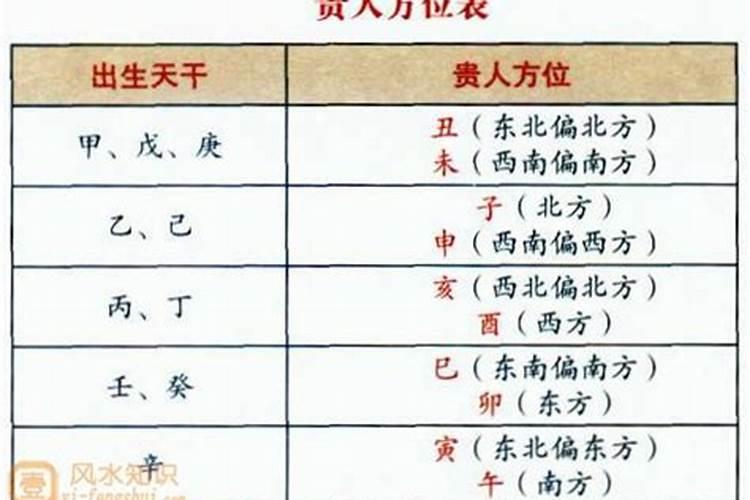 贵人方位表
出生天干 贵人方位
甲、戊、庚
丑（东北偏北方）
未（西南偏南方）
乙、己
子（北方）
申（西南偏西方）
丙、丁
亥（西北偏北方）
酉（西方）
壬、癸
巳（东南偏南方）
卯（东方）
辛
寅（东北偏东方）
午（南方）
壹 风水知识
yi-fengshui.com